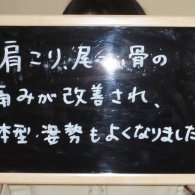 肩こり、尾てい骨の
痛みが改善され、
体型・姿勢もよくなりました